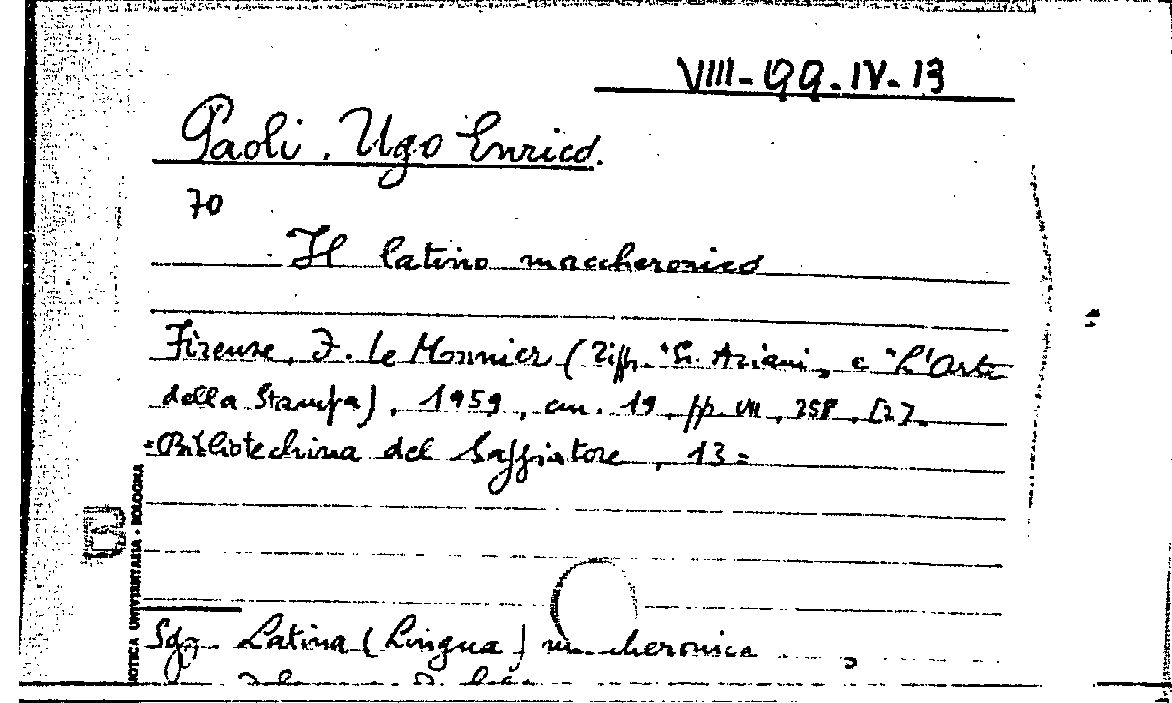 VIII-99.IV-13
Paoli, Ugo Enrico.
70
Il latino maccheronico
Firenze, F. Le Monnier (Tipp. "G. Ariani" e "L'Arte
della Stampa), 1959, cm. 19, pp. VII, 258, [2].
=Bibliotechina del Saggiatore, 13=
Sgg. Latina (Lingua) maccheronica
UNIVERSITARIA - BOLOGNA